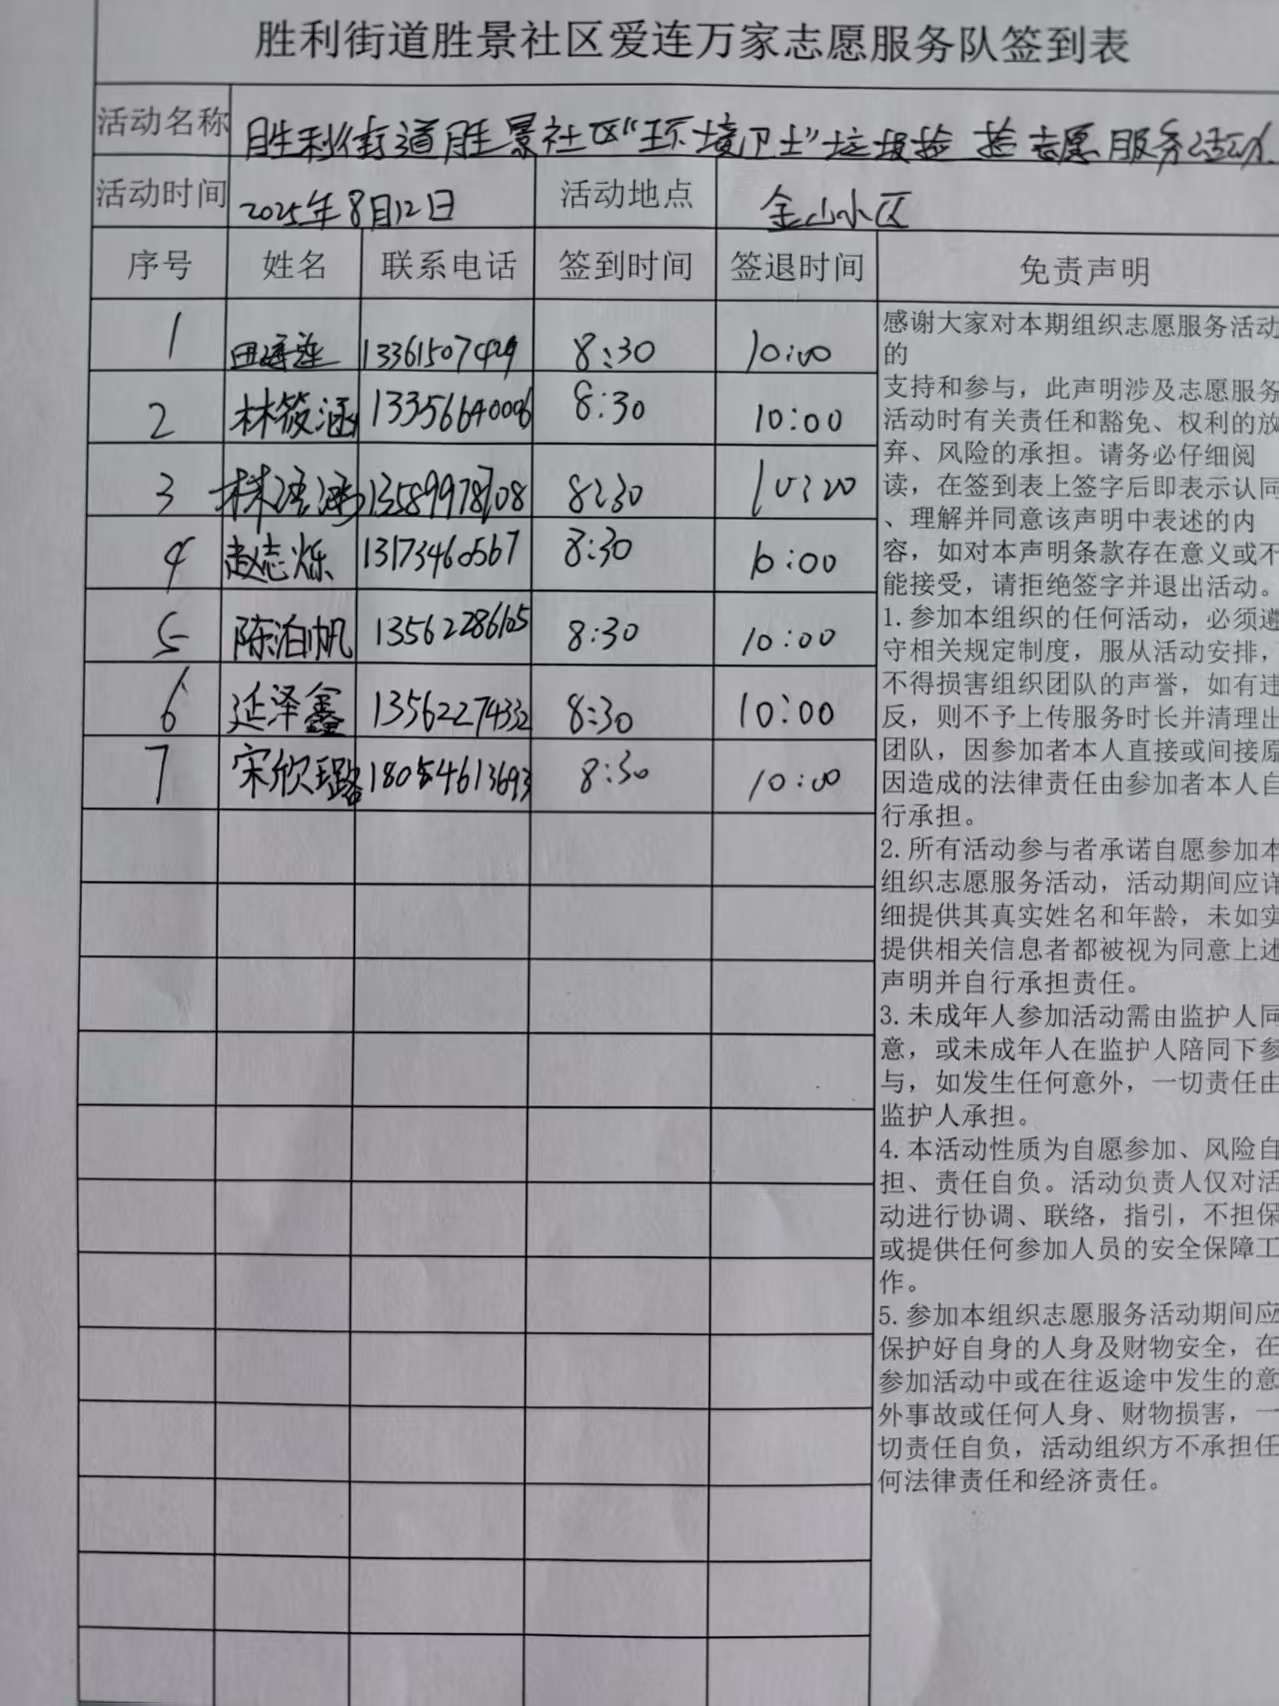 胜利街道胜景社区爱连万家志愿服务队签到表
活动名称 胜利街道胜景社区“环境卫士”垃圾捡 捡志愿服务活动
活动时间 2025年8月12日 活动地点 金山小区
序号 姓名 联系电话 签到时间 签退时间 免责声明
1 田 13361507429 8:30 10:00
2 林筱涵 13356640006 8:30 10:00
3 林 13589978708 8:30 10:20
4 赵志烁 13173460567 8:30 10:00
5 陈泊帆 13562286105 8:30 10:00
6 延泽鑫 13562274332 8:30 10:00
7 宋欣璐 18054613693 8:30 10:00
感谢大家对本期组织志愿服务活动
的
支持和参与，此声明涉及志愿服务
活动时有关责任和豁免、权利的放
弃、风险的承担。请务必仔细阅
读，在签到表上签字后即表示认同
、理解并同意该声明中表述的内
容，如对本声明条款存在意义或不
能接受，请拒绝签字并退出活动。
1.参加本组织的任何活动，必须遵
守相关规定制度，服从活动安排，
不得损害组织团队的声誉，如有违
反，则不予上传服务时长并清理出
团队，因参加者本人直接或间接原
因造成的法律责任由参加者本人自
行承担。
2.所有活动参与者承诺自愿参加本
组织志愿服务活动，活动期间应详
细提供其真实姓名和年龄，未如实
提供相关信息者都被视为同意上述
声明并自行承担责任。
3.未成年人参加活动需由监护人同
意，或未成年人在监护人陪同下参
与，如发生任何意外，一切责任由
监护人承担。
4.本活动性质为自愿参加、风险自
担、责任自负。活动负责人仅对活
动进行协调、联络，指引，不担保
或提供任何参加人员的安全保障工
作。
5.参加本组织志愿服务活动期间应
保护好自身的人身及财物安全，在
参加活动中或在往返途中发生的意
外事故或任何人身、财物损害，一
切责任自负，活动组织方不承担任
何法律责任和经济责任。